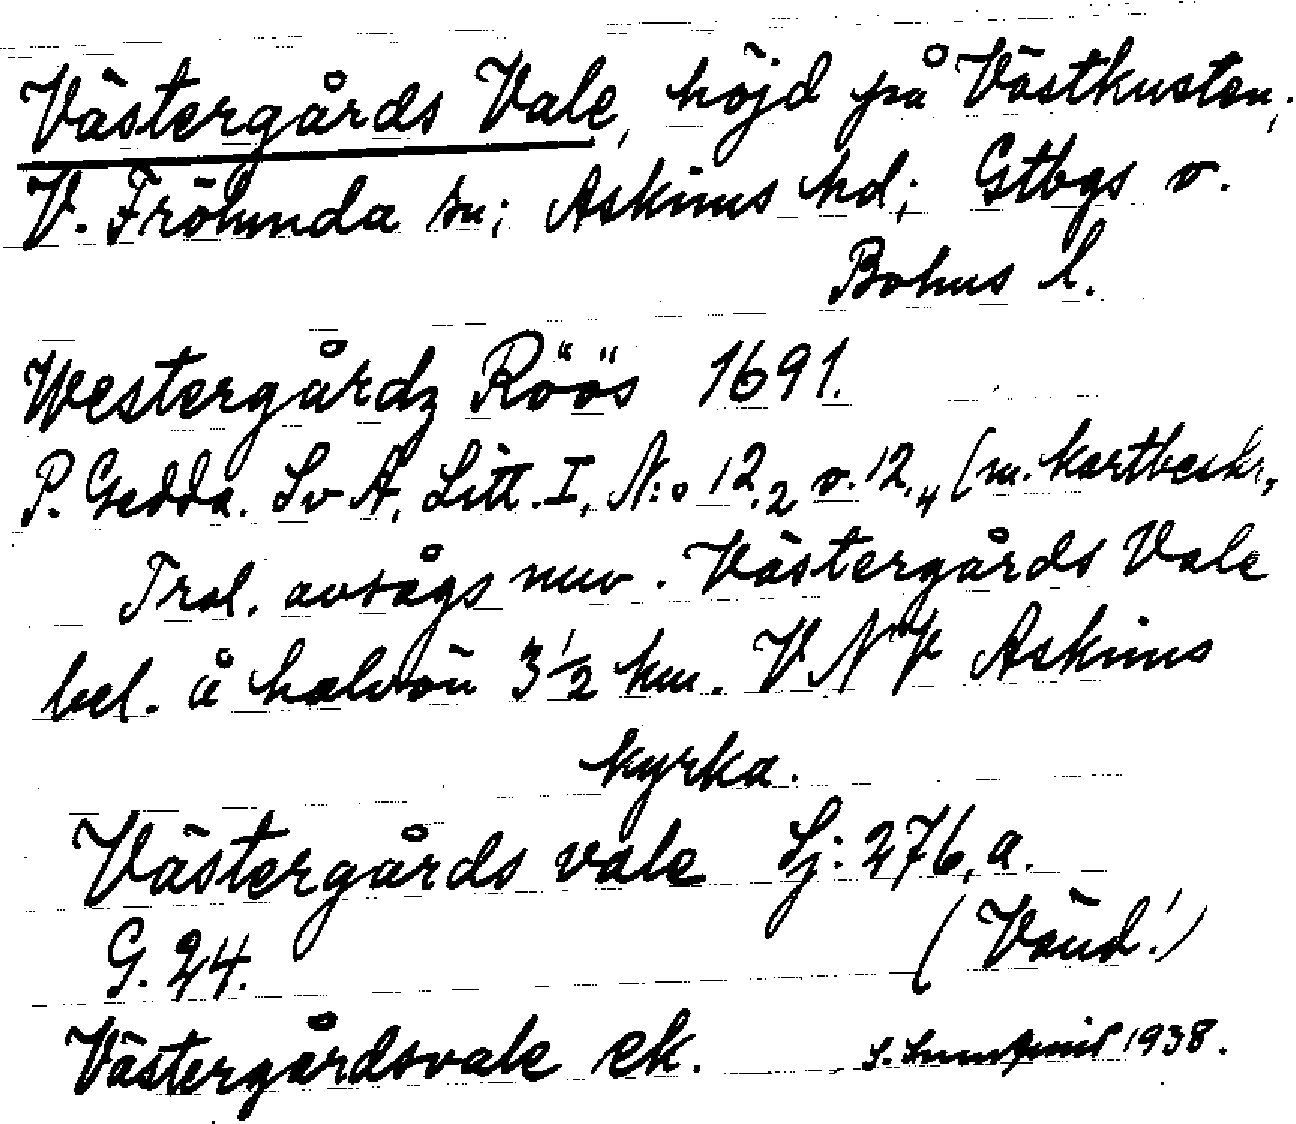 Västergårds Vale, höjd på Västkusten;
V. Frölunda sn; Askims hd; Gtbgs o.
Bohus l.
Westergårdz Röös 1691.
P. Gedda. Sv A, Litt. I, N:o 12,2 o. 12,4 (m. kartbeskr.,
Trol. avsågs nuv. Västergårds Vale
bel. å halvön 3½ km. VNV Askims
kyrka.
Västergårds vale Sj: 276, a.
G. 24. (Vänd!)
Västergårdsvale ek. 1938.